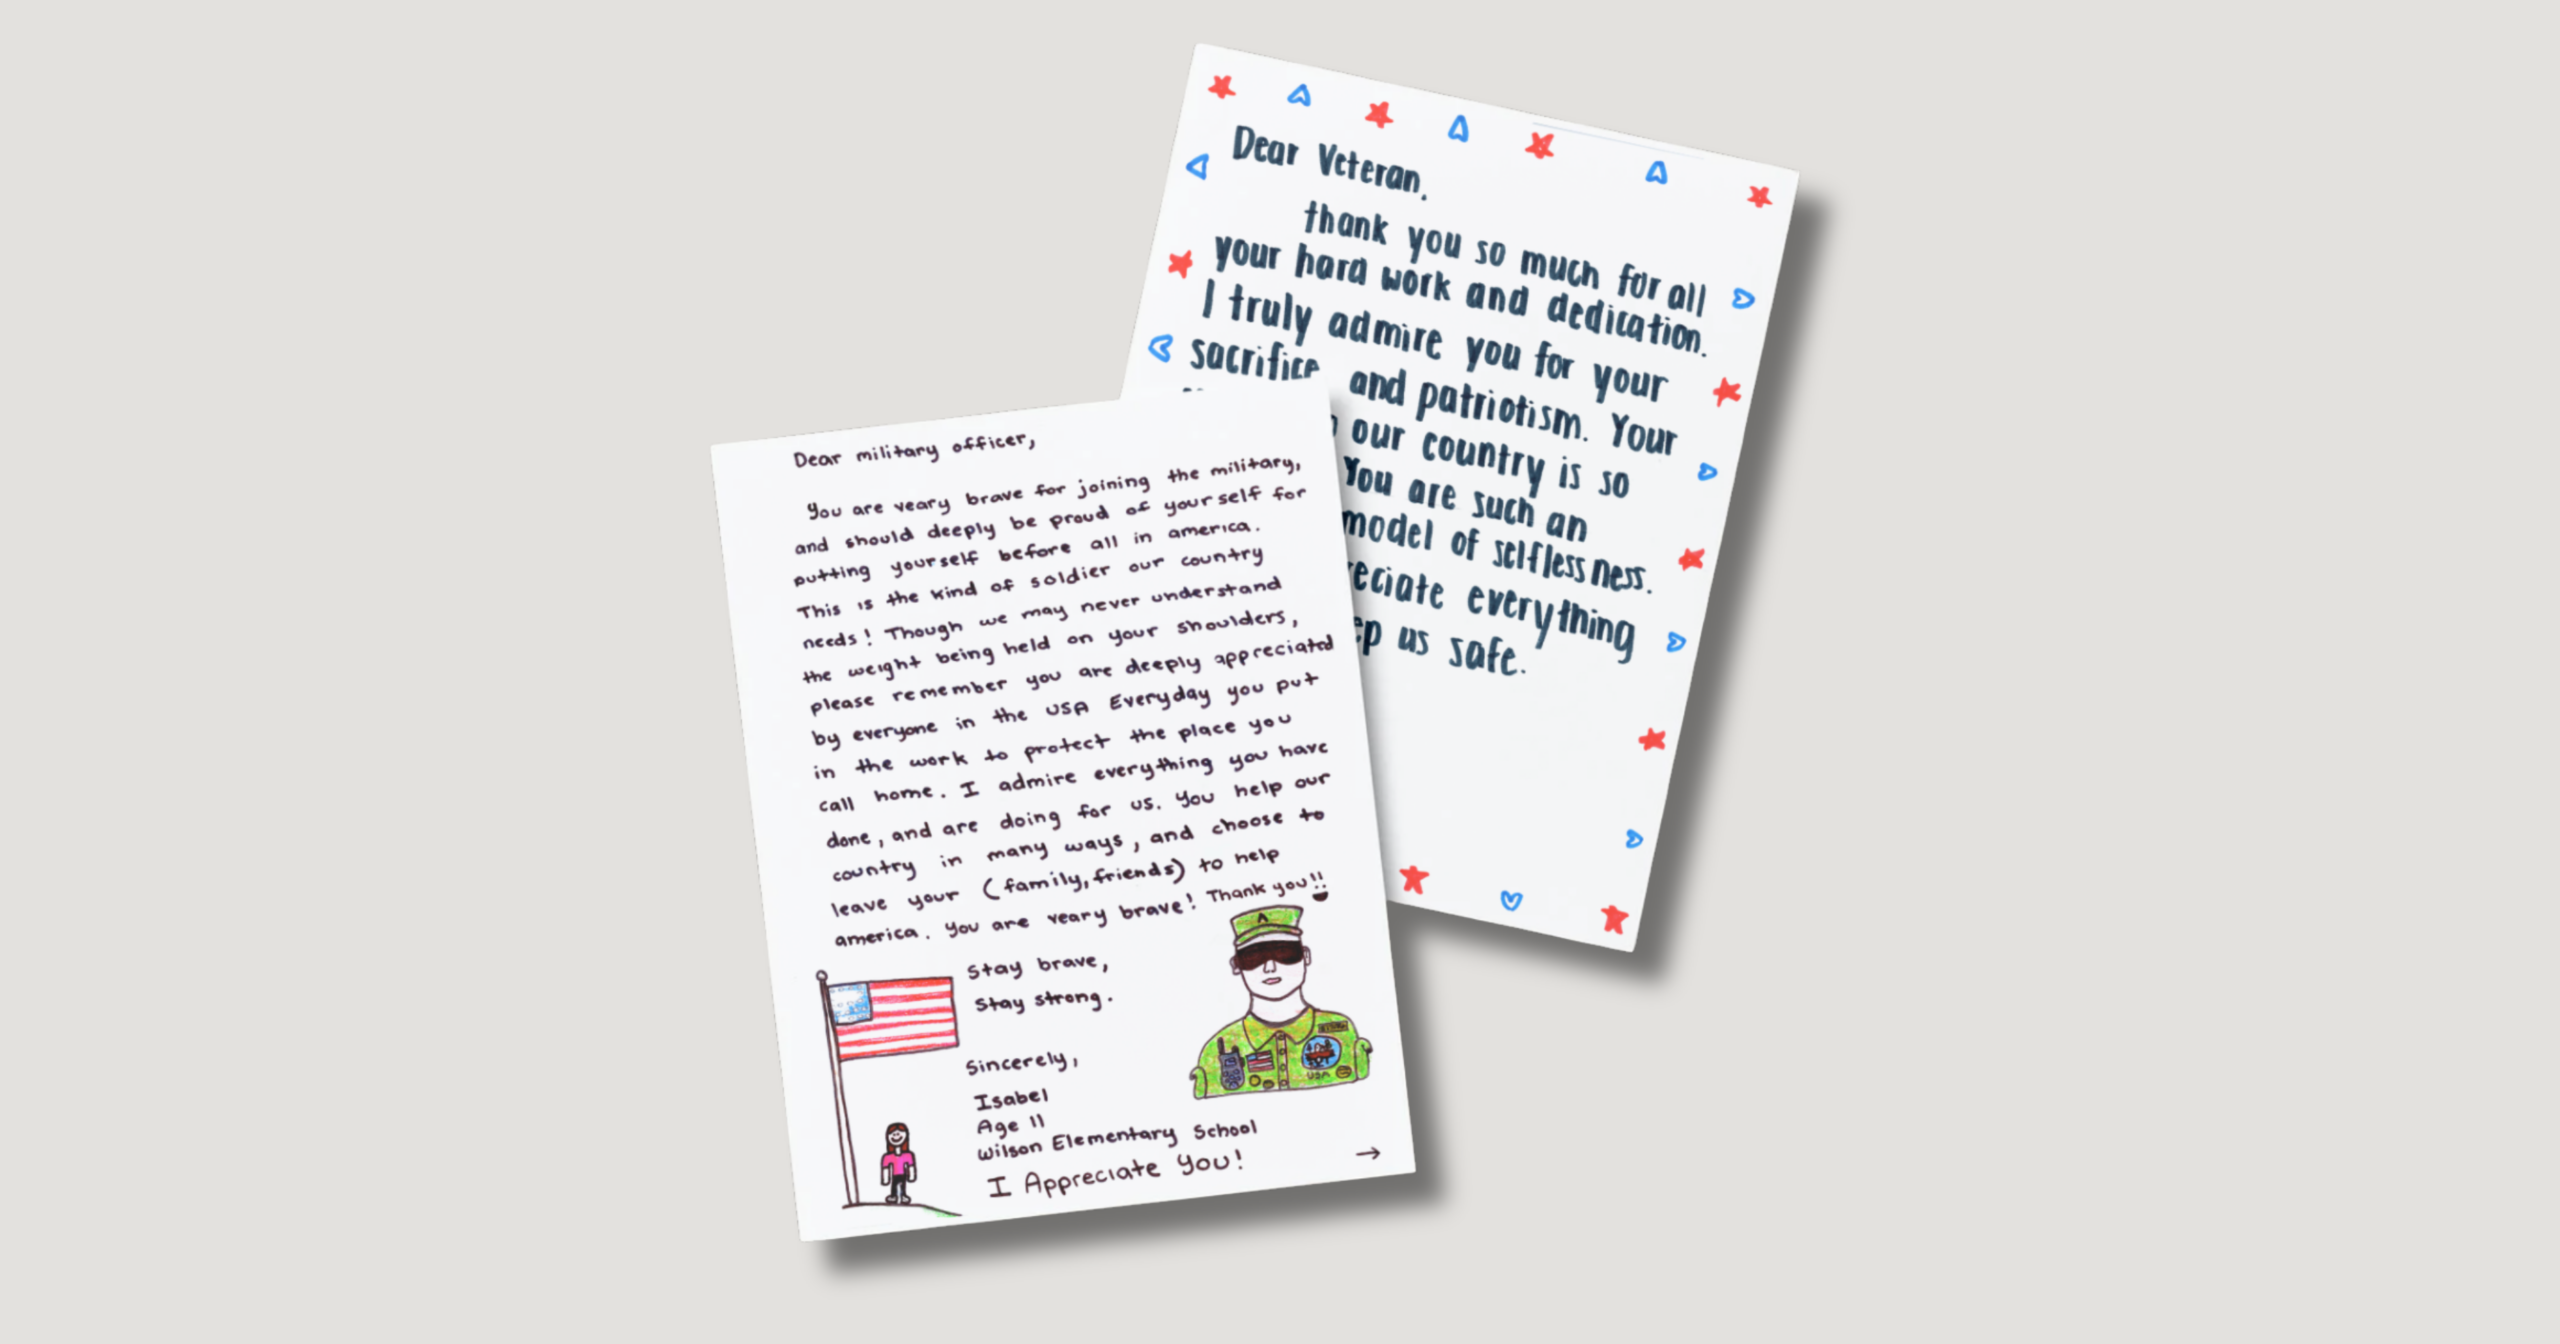 Dear Veteran.
thank you so much for all
your hard work and dedication.
I truly admire you for your
sacrifice and patriotism. Your
our country is so
You are such an
model of selflessness.
everything
us safe.
Dear military officer,
You are veary brave for joining the military,
and should deeply be proud of yourself for
putting yourself before all in america.
This is the kind of soldier our country
needs! Though we may never understand
the weight being held on your shoulders,
please remember you are deeply appreciated
by everyone in the USA Everyday you put
in the work to protect the place you
call home. I admire everything you have
done, and are doing for us. You help our
country in many ways, and choose to
leave your (family, friends) to help
america. You are veary brave! Thank you!!
Stay brave,
Stay strong.
Sincerely,
Isabel
Age 11
Wilson Elementary School
I Appreciate You!
USA